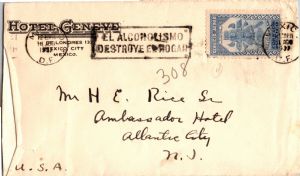 HOTEL GENEVE
MEXICO CITY
MEXICO.
EL ALCOHOLISMO
DESTROYE EL HOGAR
D.F.
308
Mr H E. Rice Sr
Ambassador Hotel
Atlantic City
N. J.
U.S.A.